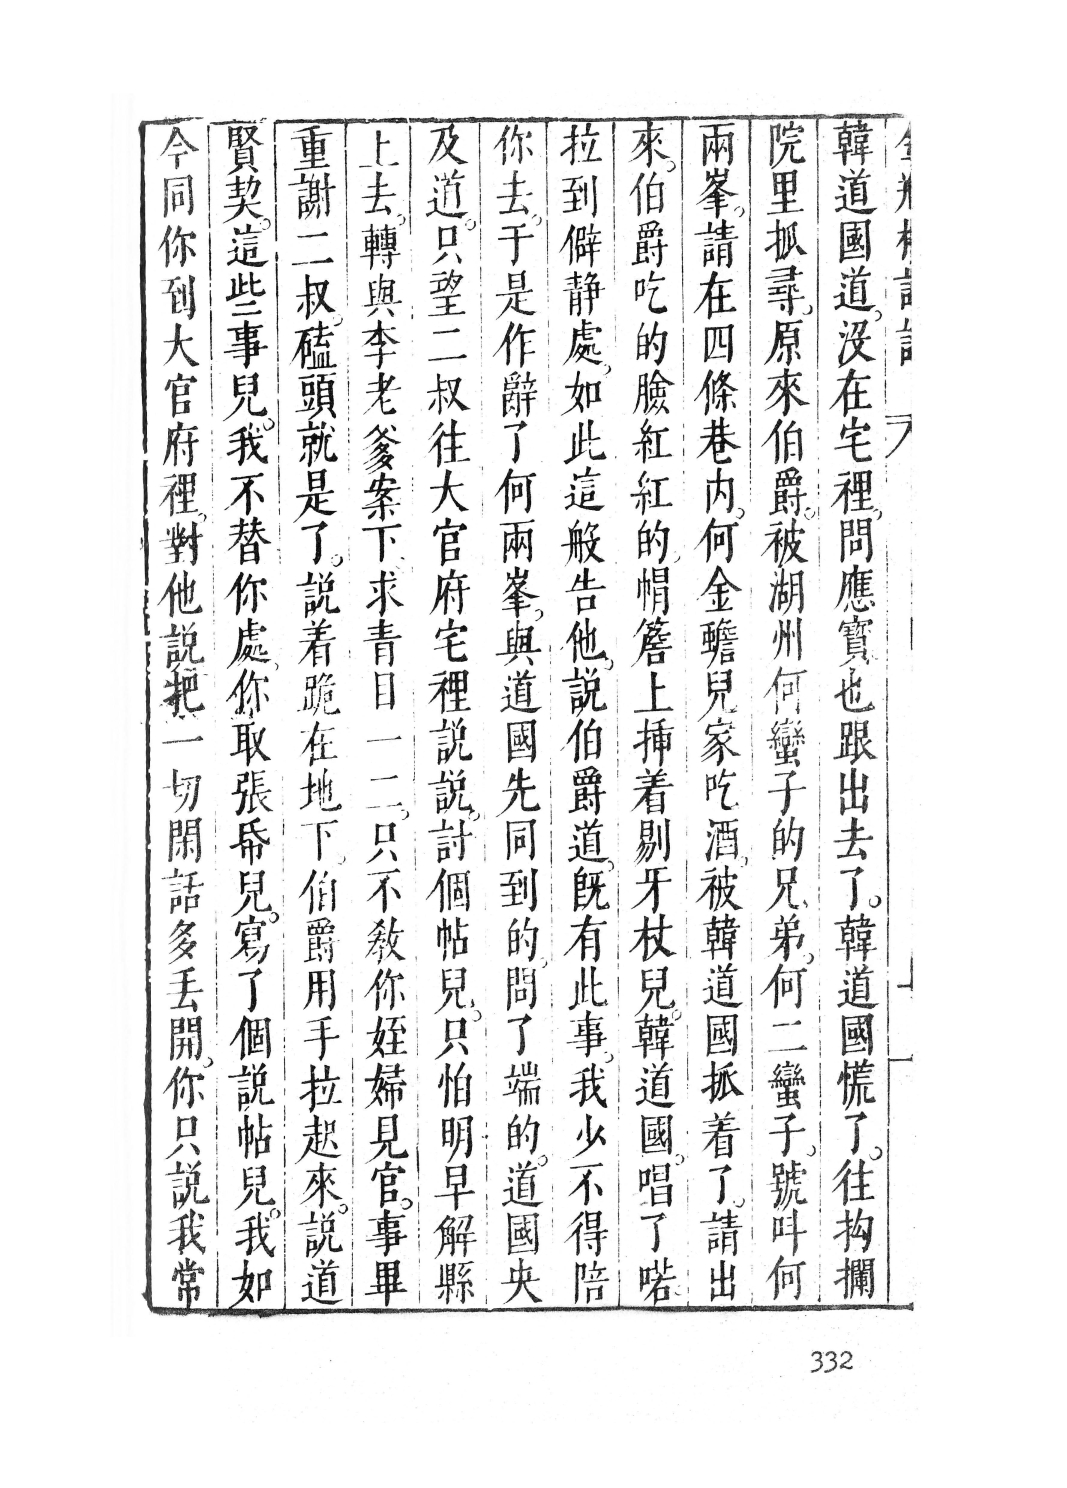 韓道國道。没在宅裡。問應寳也跟出去了。韓道國慌了。往抅攔
院里抓尋。原來伯爵。被湖州何蠻子的兄弟。何二蠻子。號叫何
兩峯。請在四條巷内。何金蟾兒家吃酒。被韓道國抓着了。請出
來。伯爵吃的臉紅紅的。帽簷上挿着剔牙杖兒。韓道國。唱了喏。
拉到僻静處。如此這般告他。説伯爵道。既有此事。我少不得陪
你去。于是作辭了何兩峯。與道國先同到的。問了端的。道國央
及道。只望二叔往大官府宅裡説説。討個帖兒。只怕明早解縣
上去。轉與李老爹案下。求青目一二。只不教你姪婦見官。事畢
重謝二叔。磕頭就是了。説着跪在地下。伯爵用手拉起來。説道
賢契。這些事兒。我不替你處。你取張帋兒。寫了個説帖兒。我如
今同你到大官府裡。對他説。把一切閑話多丢開。你只説我常
332